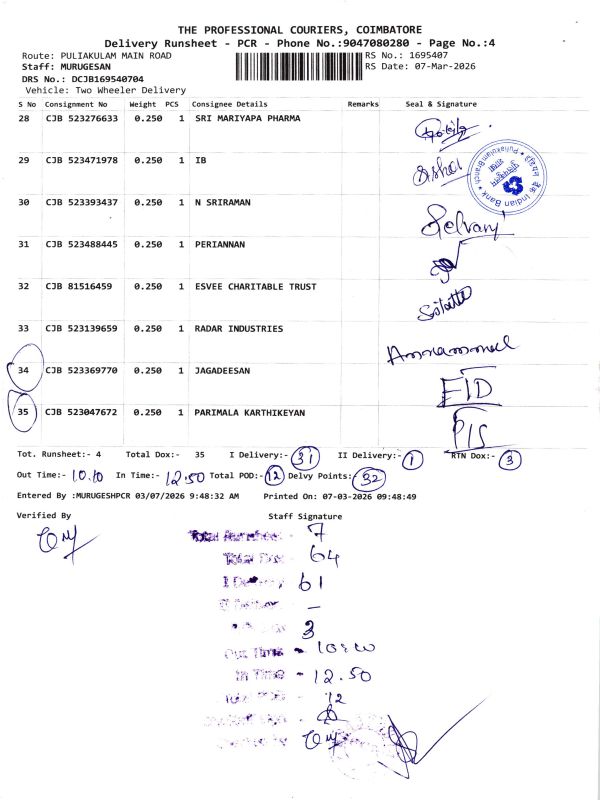 THE PROFESSIONAL COURIERS, COIMBATORE
Delivery Runsheet - PCR - Phone No.:9047080280 - Page No.:4
Route: PULIAKULAM MAIN ROAD RS No.: 1695407
Staff: MURUGESAN RS Date: 07-Mar-2026
DRS No.: DCJB169540704
Vehicle: Two Wheeler Delivery
S No Consignment No Weight PCS Consignee Details Remarks Seal & Signature
28 CJB 523276633 0.250 1 SRI MARIYAPA PHARMA
29 CJB 523471978 0.250 1 IB
Indian Bank
Puliakulam Branch
30 CJB 523393437 0.250 1 N SRIRAMAN Selvary
31 CJB 523488445 0.250 1 PERIANNAN
32 CJB 81516459 0.250 1 ESVEE CHARITABLE TRUST
33 CJB 523139659 0.250 1 RADAR INDUSTRIES
34 CJB 523369770 0.250 1 JAGADEESAN
35 CJB 523047672 0.250 1 PARIMALA KARTHIKEYAN
Tot. Runsheet:- 4 Total Dox:- 35 I Delivery:- 31 II Delivery:- 1 RTN Dox:- 3
Out Time:- 10.10 In Time:- 12.50 Total POD:- 12 Delvy Points:- 32
Entered By :MURUGESHPCR 03/07/2026 9:48:32 AM Printed On: 07-03-2026 09:48:49
Verified By Staff Signature
Total Runsheet - 7
Total Dox - 64
I Delivery 61
-
3
Out Time -
In Time - 12.50
12